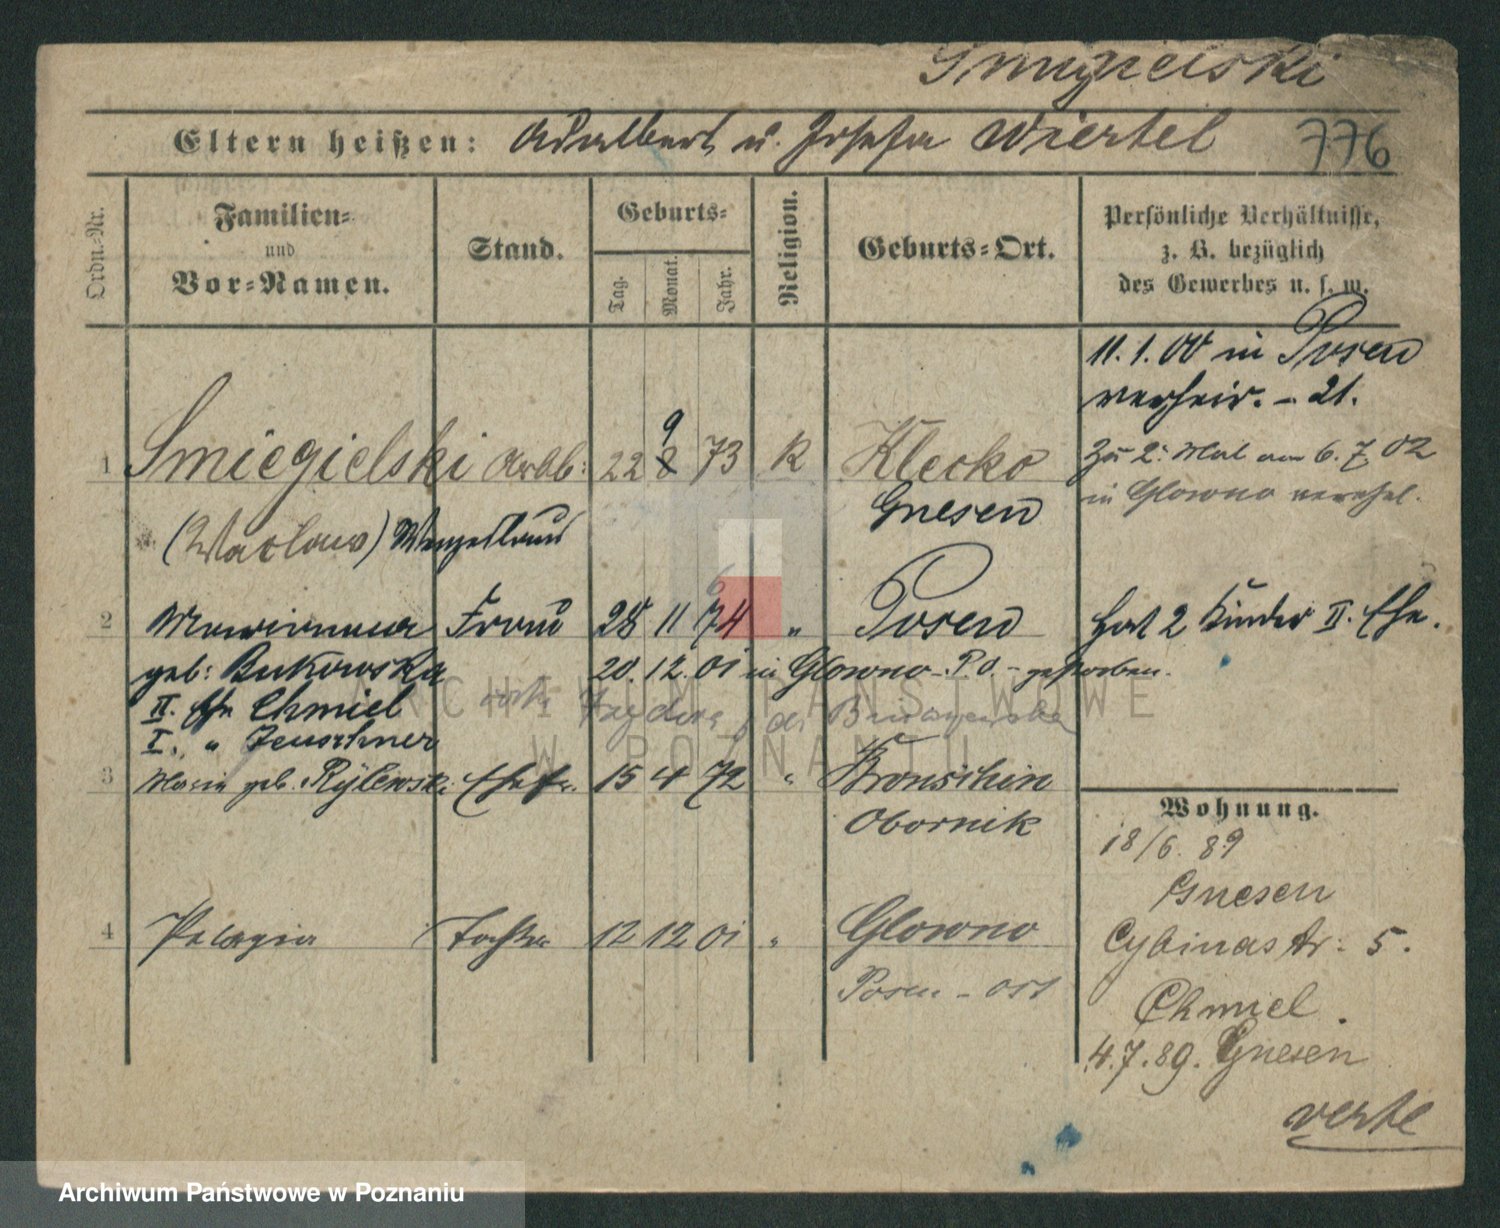 Smigielski
Eltern heißen: Adalbert u. Josefa Wiertel 776
Ordn.-Nr.
Familien-
und
Vor-Namen.
Stand.
Geburts-
Tag.
Monat.
Jahr.
Religion.
Geburts-Ort.
Persönliche Verhältnisse,
z. B. bezüglich
des Gewerbes u. s. w.
11. 1. 00 in Posen
verheir. - 21.
9
1 Smiegielski Arb: 22 8 73 K Klecko
Zu 2. Mal am 6. 7. 02
in Glowno verehel.
Gnesen
(Waclaw) Wenzeslaus
6
2 Marianna Frau 28 11 74 " Posen
hat 2 Kinder II. Ehe.
geb: Bukowska 20. 12. 01 in Glowno P. O. gestorben.
II. Ehe Chmiel
I. " Jeuschner
3 Maria geb. Rÿlewski Ehefr. 15 4 72 " Kronschin
Obornik
4 Pelagia Tochter 12 12 01 " Glowno
Posen - Ost
Wohnung.
18/6. 89
Gnesen
Cybinastr: 5.
Chmiel.
4. 7. 89. Gnesen
verte
ARCHIWUM PAŃSTWOWE
W POZNANIU
Archiwum Państwowe w Poznaniu